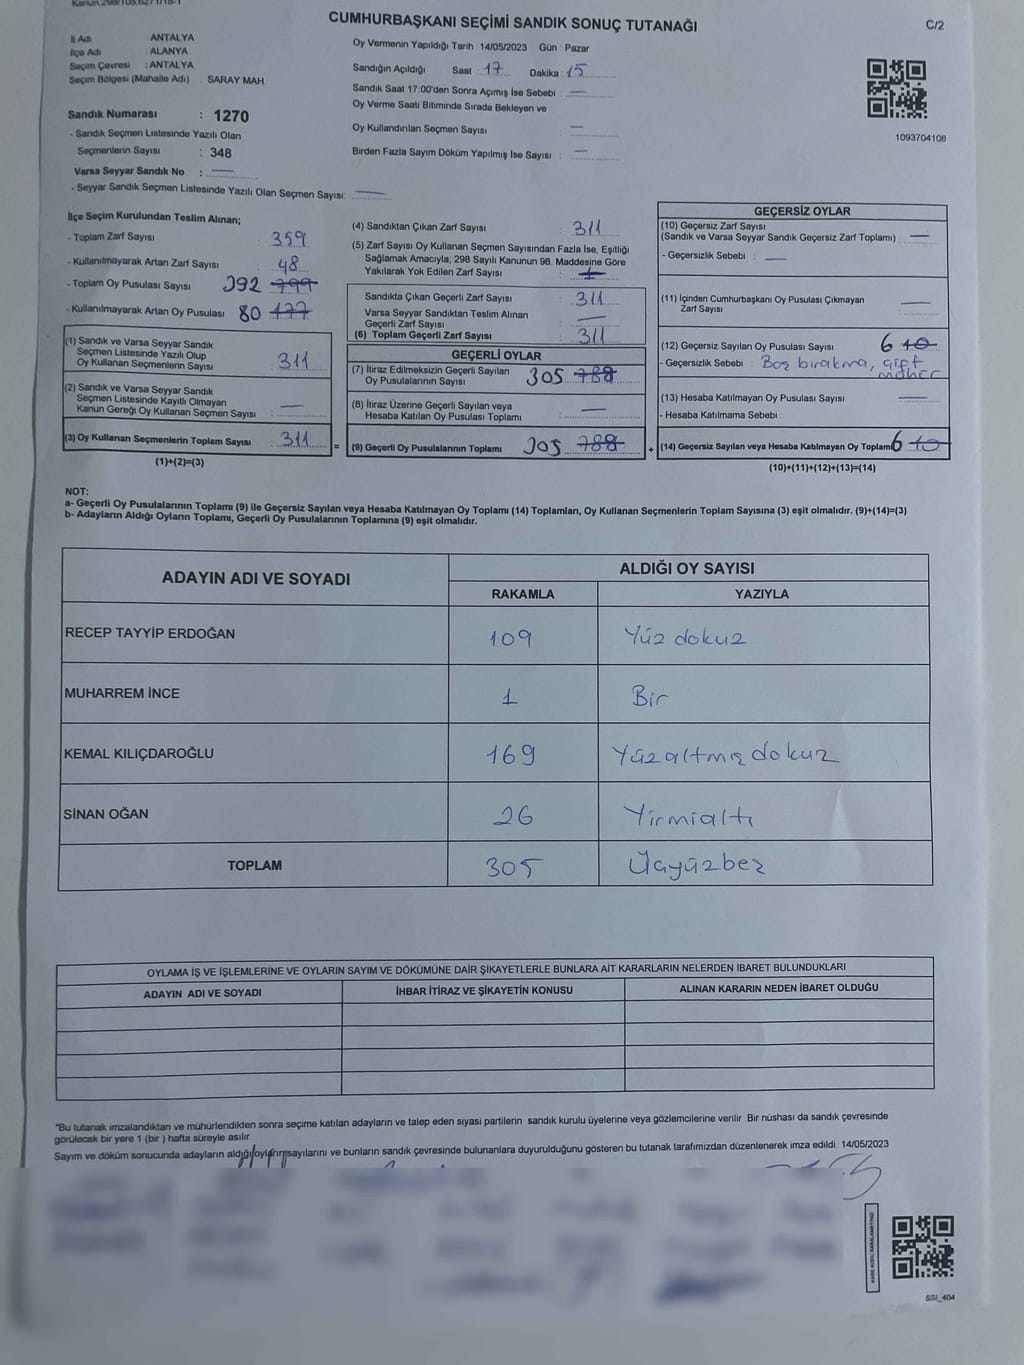 CUMHURBAŞKANI SEÇİMİ SANDIK SONUÇ TUTANAĞI
C/2
İl Adı ANTALYA
İlçe Adı : ALANYA
Seçim Çevresi : ANTALYA
Seçim Bölgesi (Mahalle Adı) : SARAY MAH.
Oy Vermenin Yapıldığı Tarih : 14/05/2023 Gün : Pazar
Sandığın Açıldığı Saat : 17 Dakika : 15
Sandık Saat 17:00'den Sonra Açımış İse Sebebi : —
Oy Verme Saati Bitiminde Sırada Bekleyen ve
Oy Kullandırılan Seçmen Sayısı —
Birden Fazla Sayım Döküm Yapılmış İse Sayısı : —
1093704108
Sandık Numarası : 1270
- Sandık Seçmen Listesinde Yazılı Olan
Seçmenlerin Sayısı : 348
Varsa Seyyar Sandık No : —
- Seyyar Sandık Seçmen Listesinde Yazılı Olan Seçmen Sayısı: —
İlçe Seçim Kurulundan Teslim Alınan;
- Toplam Zarf Sayısı : 359
- Kullanılmayarak Artan Zarf Sayısı : 48
- Toplam Oy Pusulası Sayısı 392 799
- Kullanılmayarak Artan Oy Pusulası 80 177
(1) Sandık ve Varsa Seyyar Sandık
Seçmen Listesinde Yazılı Olup
Oy Kullanan Seçmenlerin Sayısı : 311
(2) Sandık ve Varsa Seyyar Sandık
Seçmen Listesinde Kayıtlı Olmayan
Kanun Gereği Oy Kullanan Seçmen Sayısı : —
(3) Oy Kullanan Seçmenlerin Toplam Sayısı : 311
(1)+(2)=(3)
(4) Sandıktan Çıkan Zarf Sayısı : 311
(5) Zarf Sayısı Oy Kullanan Seçmen Sayısından Fazla İse, Eşitliği
Sağlamak Amacıyla, 298 Sayılı Kanunun 98. Maddesine Göre
Yakılarak Yok Edilen Zarf Sayısı :
Sandıkta Çıkan Geçerli Zarf Sayısı : 311
Varsa Seyyar Sandıktan Teslim Alınan
Geçerli Zarf Sayısı : —
(6) Toplam Geçerli Zarf Sayısı : 311
GEÇERLİ OYLAR
(7) İtiraz Edilmeksizin Geçerli Sayılan
Oy Pusulalarının Sayısı 305 788
(8) İtiraz Üzerine Geçerli Sayılan veya
Hesaba Katılan Oy Pusulası Toplamı : —
= (9) Geçerli Oy Pusulalarının Toplamı 305 788 +
GEÇERSİZ OYLAR
(10) Geçersiz Zarf Sayısı
(Sandık ve Varsa Seyyar Sandık Geçersiz Zarf Toplamı) : —
- Geçersizlik Sebebi : —
(11) İçinden Cumhurbaşkanı Oy Pusulası Çıkmayan
Zarf Sayısı : —
(12) Geçersiz Sayılan Oy Pusulası Sayısı 6 10
- Geçersizlik Sebebi : Boş bırakma, çift
mühür
(13) Hesaba Katılmayan Oy Pusulası Sayısı : —
- Hesaba Katılmama Sebebi :
(14) Geçersiz Sayılan veya Hesaba Katılmayan Oy Toplamı 6 10
(10)+(11)+(12)+(13)=(14)
NOT:
a- Geçerli Oy Pusulalarının Toplamı (9) ile Geçersiz Sayılan veya Hesaba Katılmayan Oy Toplamı (14) Toplamları, Oy Kullanan Seçmenlerin Toplam Sayısına (3) eşit olmalıdır. (9)+(14)=(3)
b- Adayların Aldığı Oyların Toplamı, Geçerli Oy Pusulalarının Toplamına (9) eşit olmalıdır.
ADAYIN ADI VE SOYADI ALDIĞI OY SAYISI
RAKAMLA YAZIYLA
RECEP TAYYİP ERDOĞAN 109 Yüz dokuz
MUHARREM İNCE 1 Bir
KEMAL KILIÇDAROĞLU 169 Yüzaltmış dokuz
SİNAN OĞAN 26 Yirmialtı
TOPLAM 305 Üçyüzbeş
OYLAMA İŞ VE İŞLEMLERİNE VE OYLARIN SAYIM VE DÖKÜMÜNE DAİR ŞİKAYETLERLE BUNLARA AİT KARARLARIN NELERDEN İBARET BULUNDUKLARI
ADAYIN ADI VE SOYADI İHBAR İTİRAZ VE ŞİKAYETİN KONUSU ALINAN KARARIN NEDEN İBARET OLDUĞU
*Bu tutanak imzalandıktan ve mühürlendikten sonra seçime katılan adayların ve talep eden siyasi partilerin sandık kurulu üyelerine veya gözlemcilerine verilir. Bir nüshası da sandık çevresinde
görülecek bir yere 1 (bir ) hafta süreyle asılır.
Sayım ve döküm sonucunda adayların aldığı oyların sayılarını ve bunların sandık çevresinde bulunanlara duyurulduğunu gösteren bu tutanak tarafımızdan düzenlenerek imza edildi. 14/05/2023
KARE KODU KARALAMAYINIZ!
SSI_404